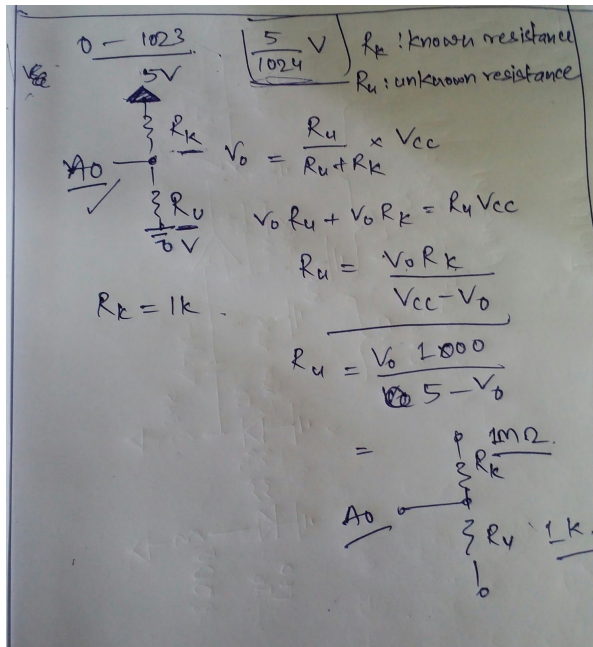 0 - 1023
5/1024 V
Rk : known resistance
Ru : unknown resistance
5V
Rk
A0
Vo = Ru/(Ru+Rk) × Vcc
Ru
0V
VoRu + VoRk = RuVcc
Ru = VoRk/(Vcc-Vo)
Rk = 1k.
Ru = Vo 1000/(5-Vo)
=
1MΩ.
Rk
A0
Ru 1k.